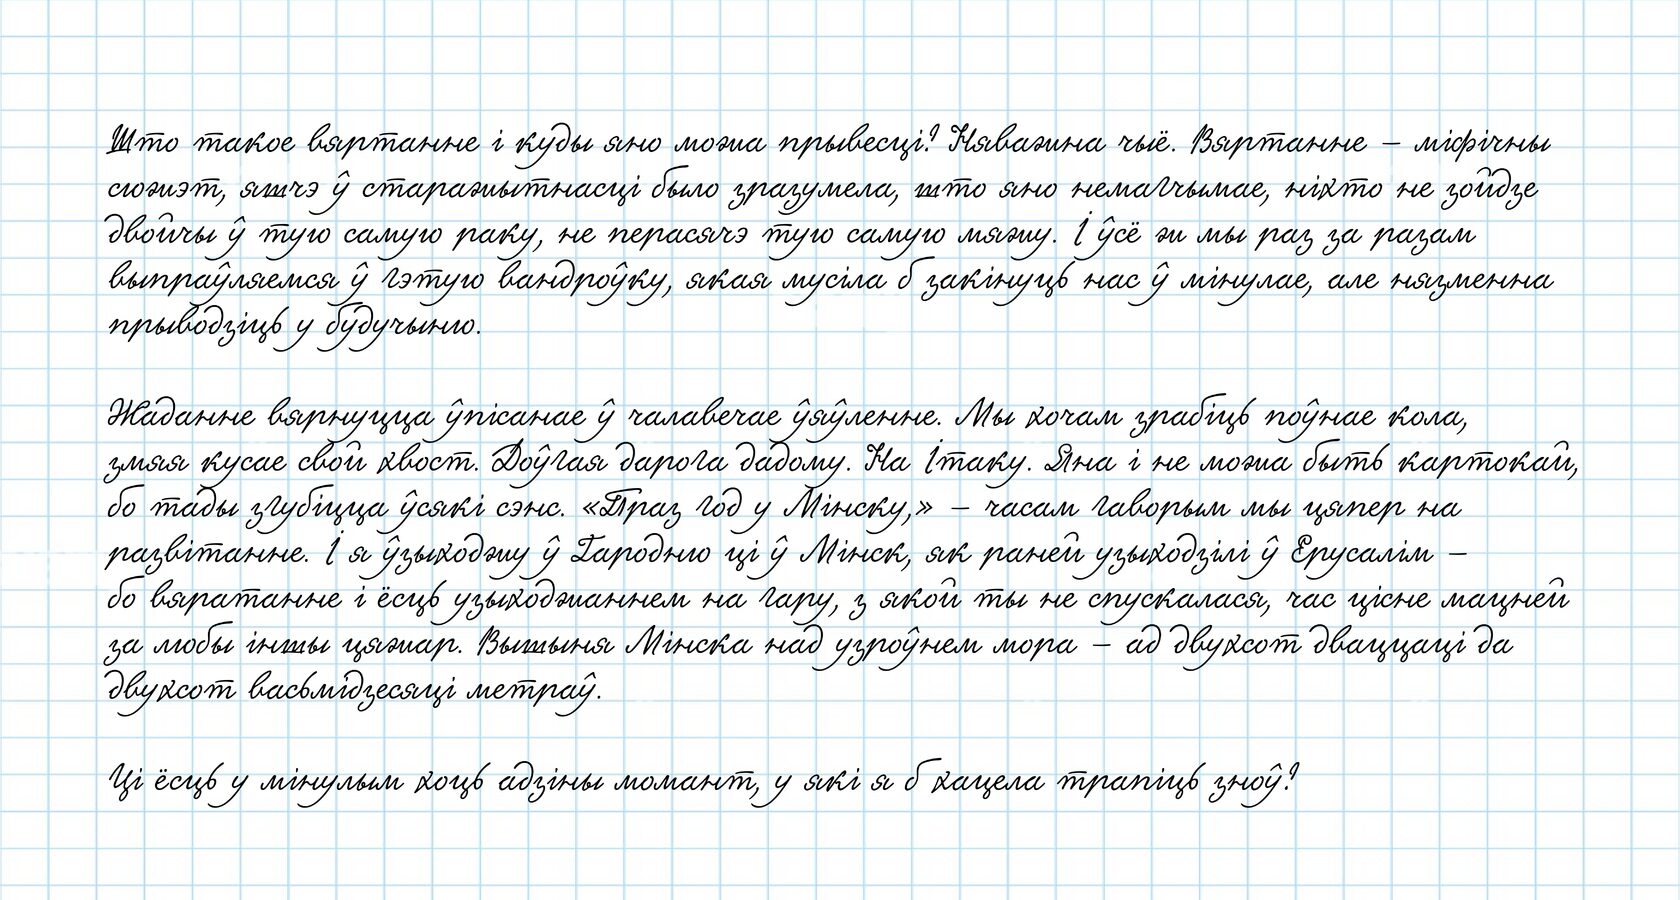 Што такое вяртанне і куды яно можа прывесці? Няважна чыё. Вяртанне – міфічны
сюжэт, яшчэ ў старажытнасці было зразумела, што яно немагчымае, ніхто не зойдзе
двойчы ў тую самую раку, не перасячэ тую самую мяжу. І ўсё ж мы раз за разам
выпраўляемся ў гэтую вандроўку, якая мусіла б закінуць нас ў мінулае, але нязменна
прыводзіць у будучыню.
Жаданне вярнуцца ўпісанае ў чалавечае ўяўленне. Мы хочам зрабіць поўнае кола,
змяя кусае свой хвост. Доўгая дарога дадому. На Ітаку. Яна і не можа быть карткокай,
бо тады згубіцца ўсякі сэнс. «Праз год у Мінску,» – часам гаворым мы цяпер на
развітанне. І я ўзыходжу ў Гародню ці ў Мінск, як раней узыходзілі ў Ерусалім –
бо вяратанне і ёсць узыходжаннем на гару, з якой ты не спускалася, час цісне мацней
за любы іншы цяжар. Вышыня Мінска над узроўнем мора – ад двухсот дваццаці да
двухсот васьмідзесяці метраў.
Ці ёсць у мінулым хоць адзіны момант, у які я б хацела трапіць зноў?